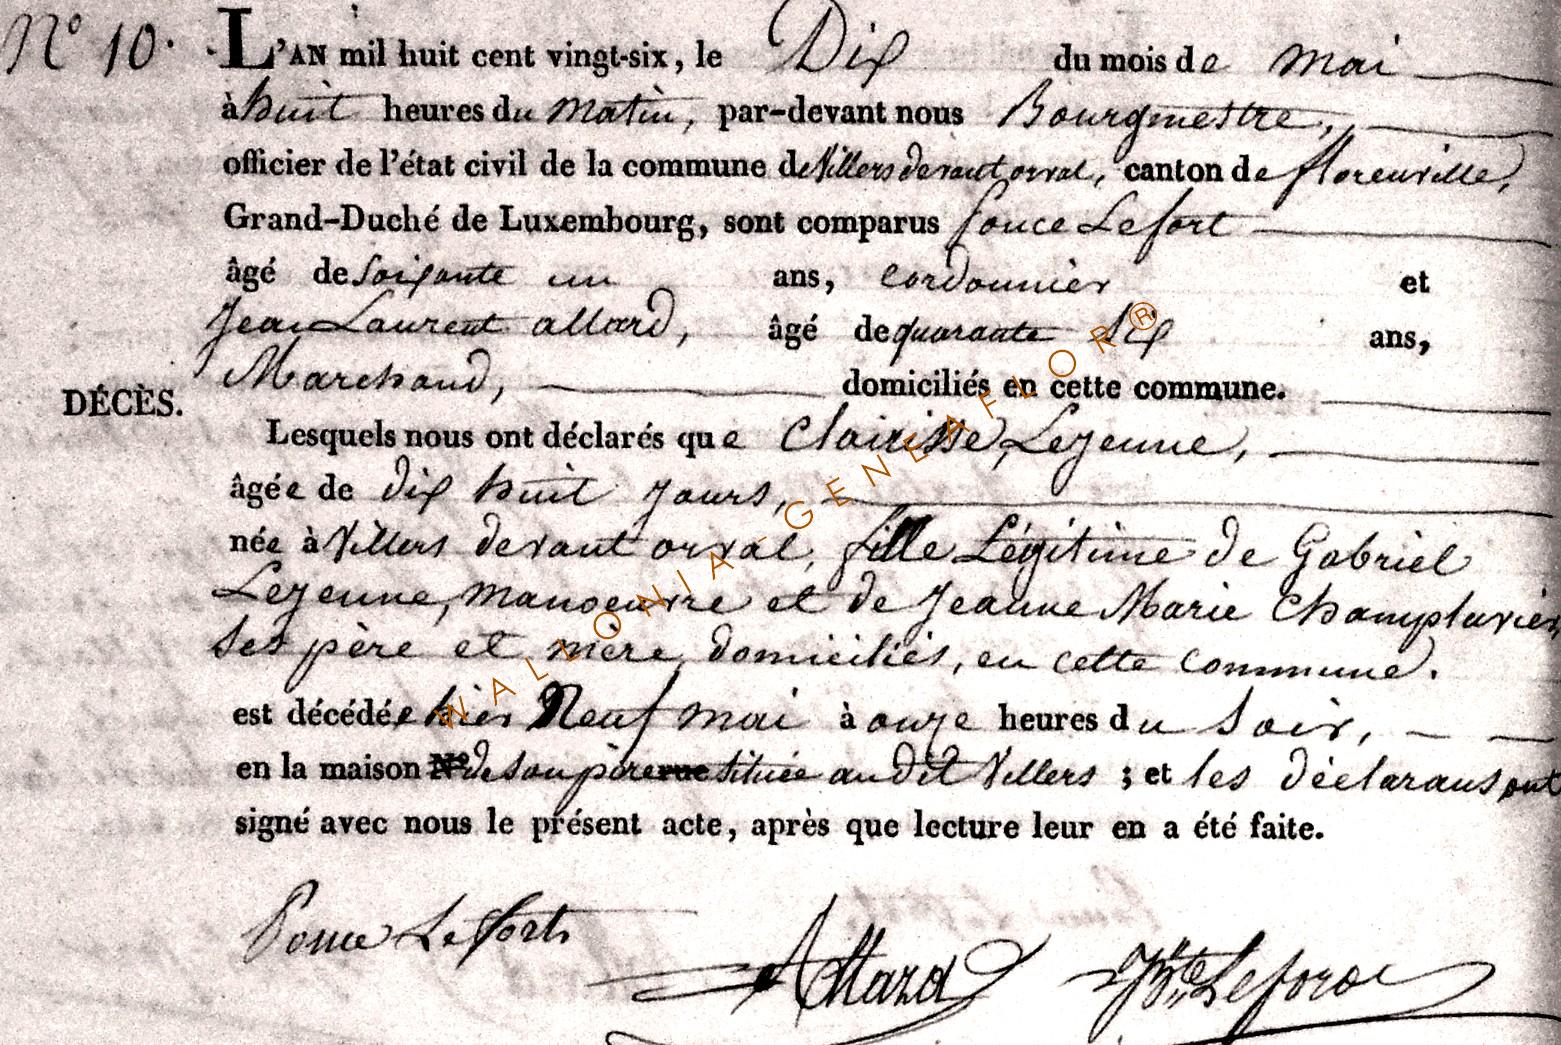 N° 10.
L'AN mil huit cent vingt-six, le Dix du mois de mai
à huit heures du matin, par-devant nous Bourgmestre,
officier de l'état civil de la commune de Villers devant orval, canton de florenville,
Grand-Duché de Luxembourg, sont comparus ponce Lefort
âgé de soixante un ans, cordonnier et
Jean Laurent allard, âgé de quarante six ans,
Marchand, domiciliés en cette commune.
DÉCÈS.
Lesquels nous ont déclarés que Clairisse Lejeune,
âgée de dix huit jours,
née à Villers devant orval, fille Légitime de Gabriel
Lejeune, manoeuvre et de Jeanne Marie Champlavier
ses père et mère, domiciliés, en cette commune.
est décédée hier Neuf mai à onze heures du soir,
en la maison N° de son père rue située au dit Villers ; et les déclarans ont
signé avec nous le présent acte, après que lecture leur en a été faite.
Ponce Lefort
Allard
WALLONIA-GENEAFLOR®